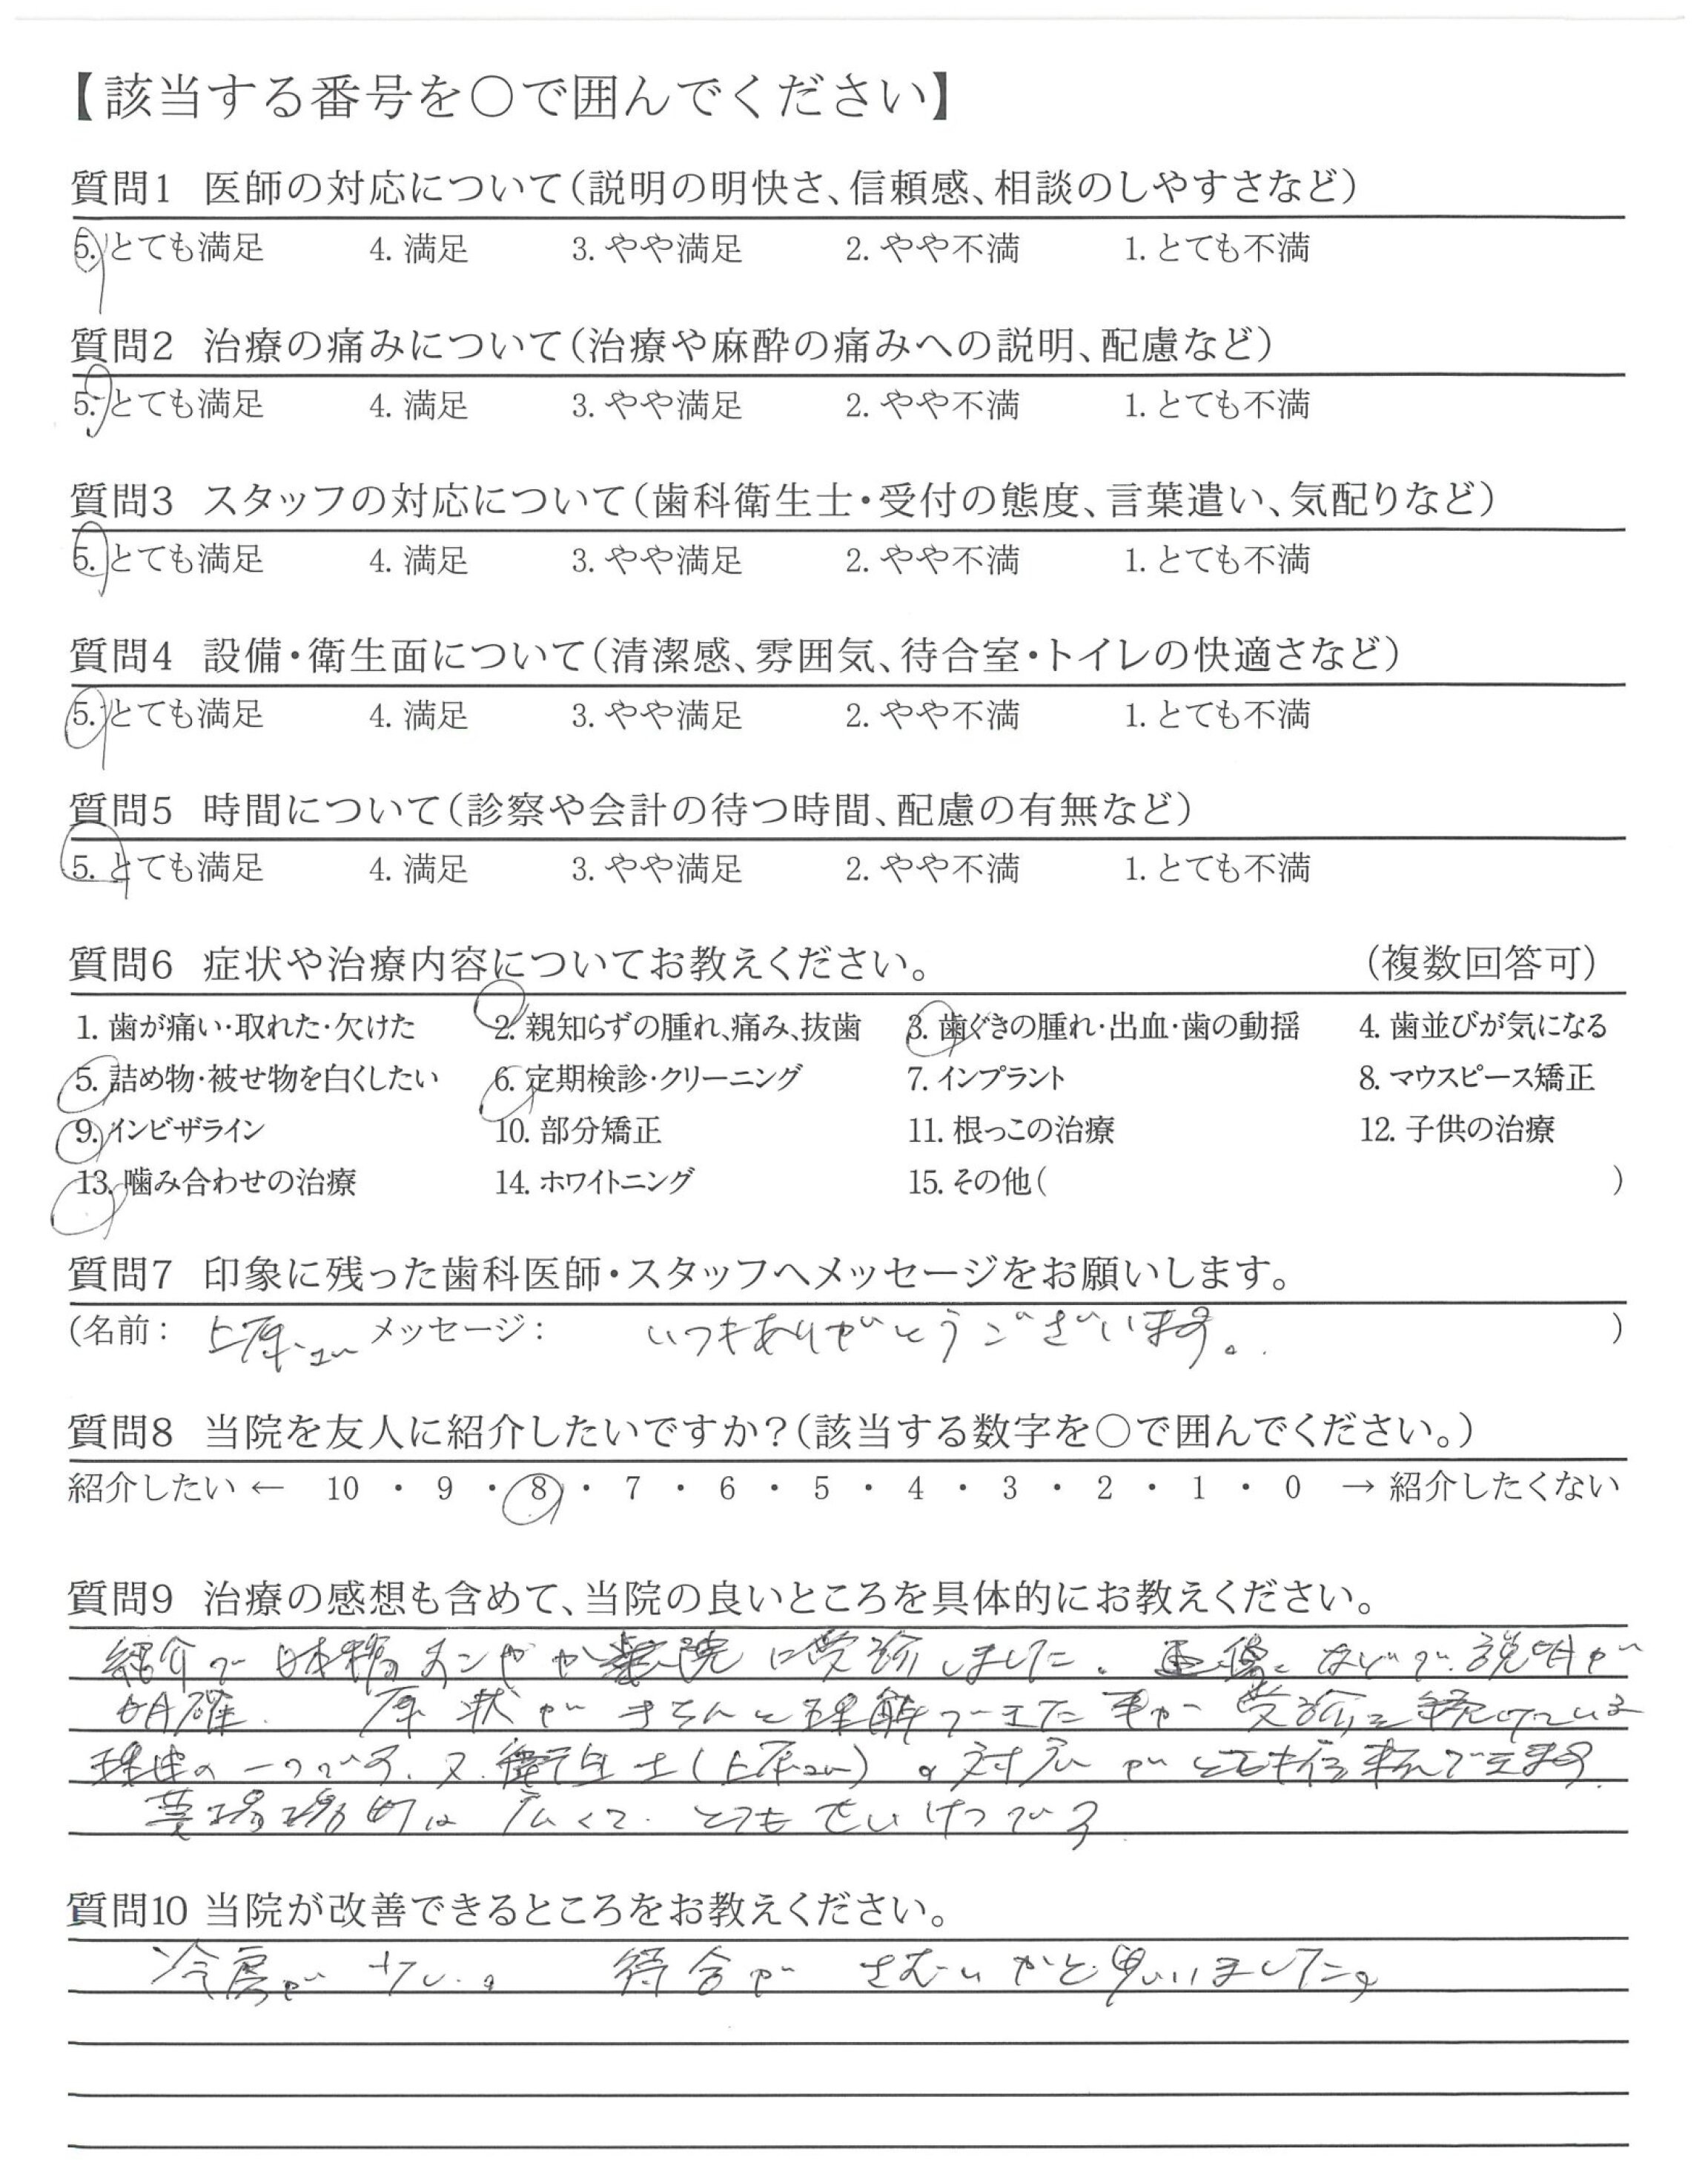 【該当する番号を〇で囲んでください】
質問1 医師の対応について(説明の明快さ、信頼感、相談のしやすさなど)
5. とても満足 4. 満足 3. やや満足 2. やや不満 1. とても不満
質問2 治療の痛みについて(治療や麻酔の痛みへの説明、配慮など)
5. とても満足 4. 満足 3. やや満足 2. やや不満 1. とても不満
質問3 スタッフの対応について(歯科衛生士・受付の態度、言葉遣い、気配りなど)
5. とても満足 4. 満足 3. やや満足 2. やや不満 1. とても不満
質問4 設備・衛生面について(清潔感、雰囲気、待合室・トイレの快適さなど)
5. とても満足 4. 満足 3. やや満足 2. やや不満 1. とても不満
質問5 時間について(診察や会計の待つ時間、配慮の有無など)
5. とても満足 4. 満足 3. やや満足 2. やや不満 1. とても不満
質問6 症状や治療内容についてお教えください。 (複数回答可)
1. 歯が痛い・取れた・欠けた 2. 親知らずの腫れ、痛み、抜歯 3. 歯ぐきの腫れ・出血・歯の動揺 4. 歯並びが気になる
5. 詰め物・被せ物を白くしたい 6. 定期検診・クリーニング 7. インプラント 8. マウスピース矯正
9. インビザライン 10. 部分矯正 11. 根っこの治療 12. 子供の治療
13. 噛み合わせの治療 14. ホワイトニング 15. その他( )
質問7 印象に残った歯科医師・スタッフへメッセージをお願いします。
(名前: 上原さん メッセージ: いつもありがとうございます。 )
質問8 当院を友人に紹介したいですか?(該当する数字を〇で囲んでください。)
紹介したい ← 10 ・ 9 ・ 8 ・ 7 ・ 6 ・ 5 ・ 4 ・ 3 ・ 2 ・ 1 ・ 0 → 紹介したくない
質問9 治療の感想も含めて、当院の良いところを具体的にお教えください。
紹介で 院に受診しました。画像などで説明が
明確。 状がきちんと理解できた事が受診を続けている
理由の一つです。又、衛生士(上原さん)の対応がとても信頼できます。
は広くて、とてもせいけつです
質問10 当院が改善できるところをお教えください。
冷房が 待合が さむいかと思いました。